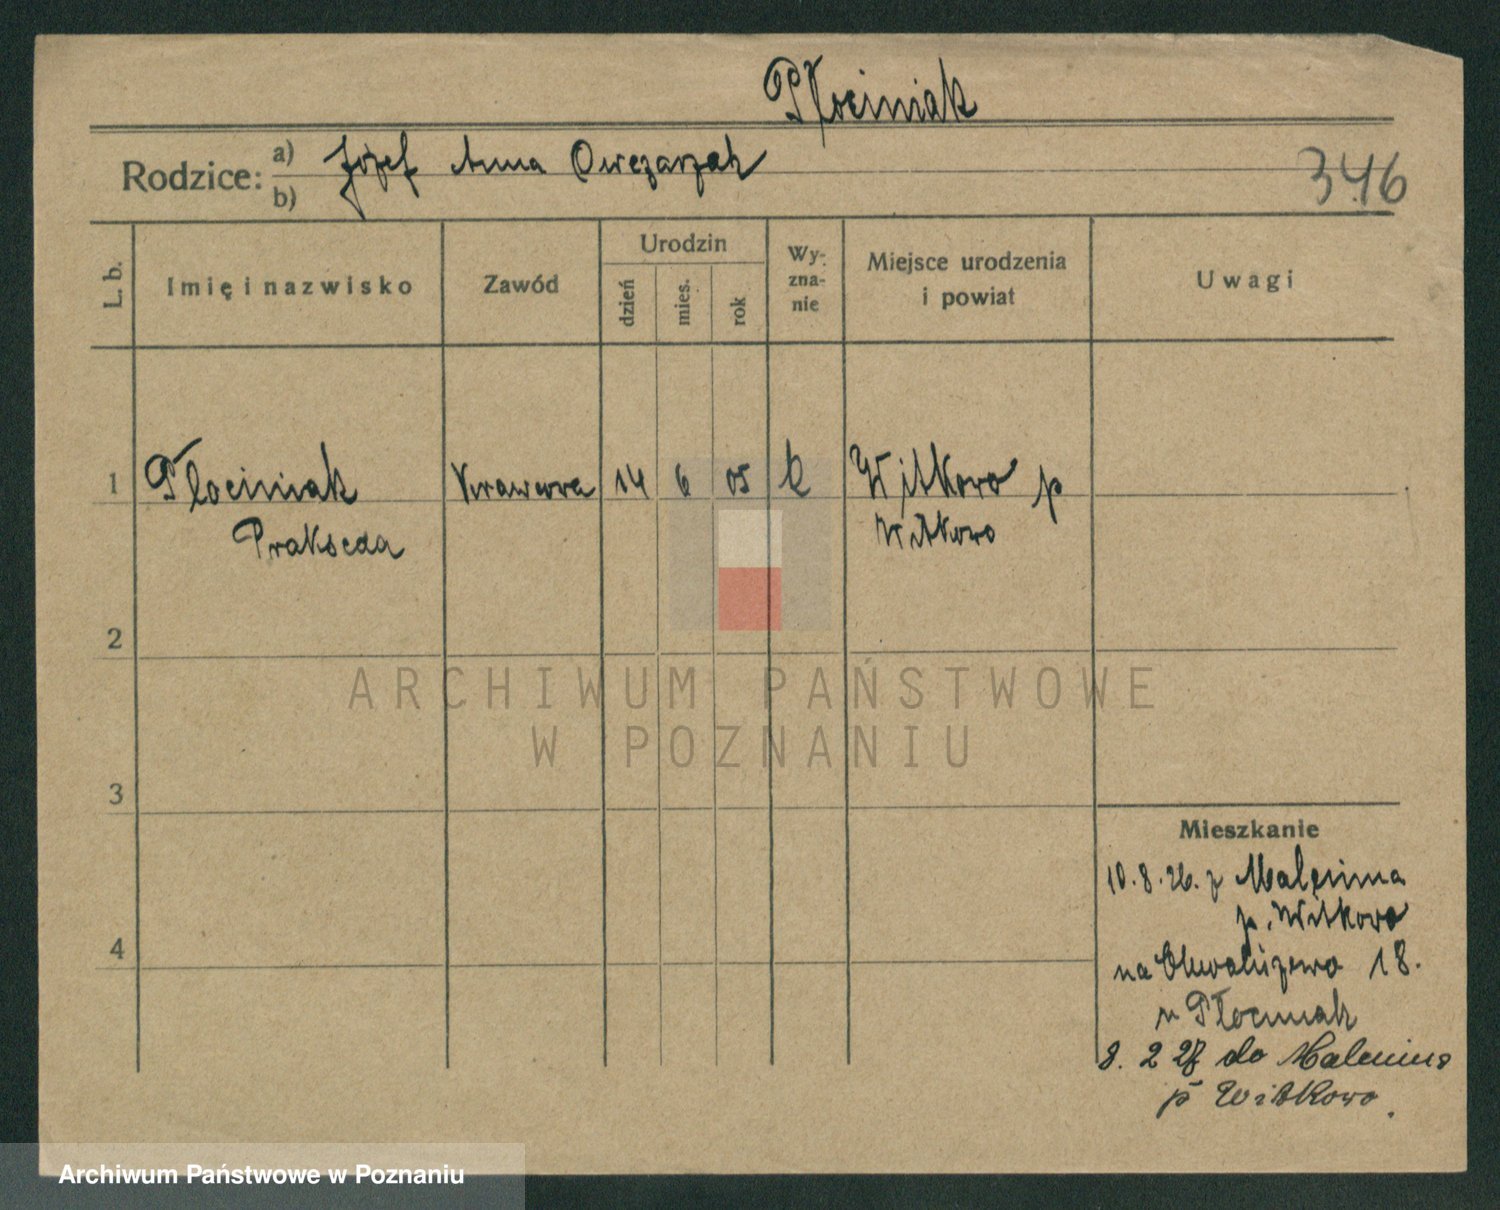 Płociniak
Rodzice: a) b) Józef Anna Owczarzak
346
L. b. Imię i nazwisko Zawód Urodzin dzień mies. rok Wyznanie Miejsce urodzenia i powiat Uwagi
1 Płociniak Krawcowa 14 6 05 k Witkowo p
Prakseda Witkowo
2
ARCHIWUM PAŃSTWOWE
W POZNANIU
3
Mieszkanie
10.8.26. z
p. Witkowo
na Chwaliszewo 18.
u Płociniak
4
8. 2 27 do
p Witkowo.
Archiwum Państwowe w Poznaniu